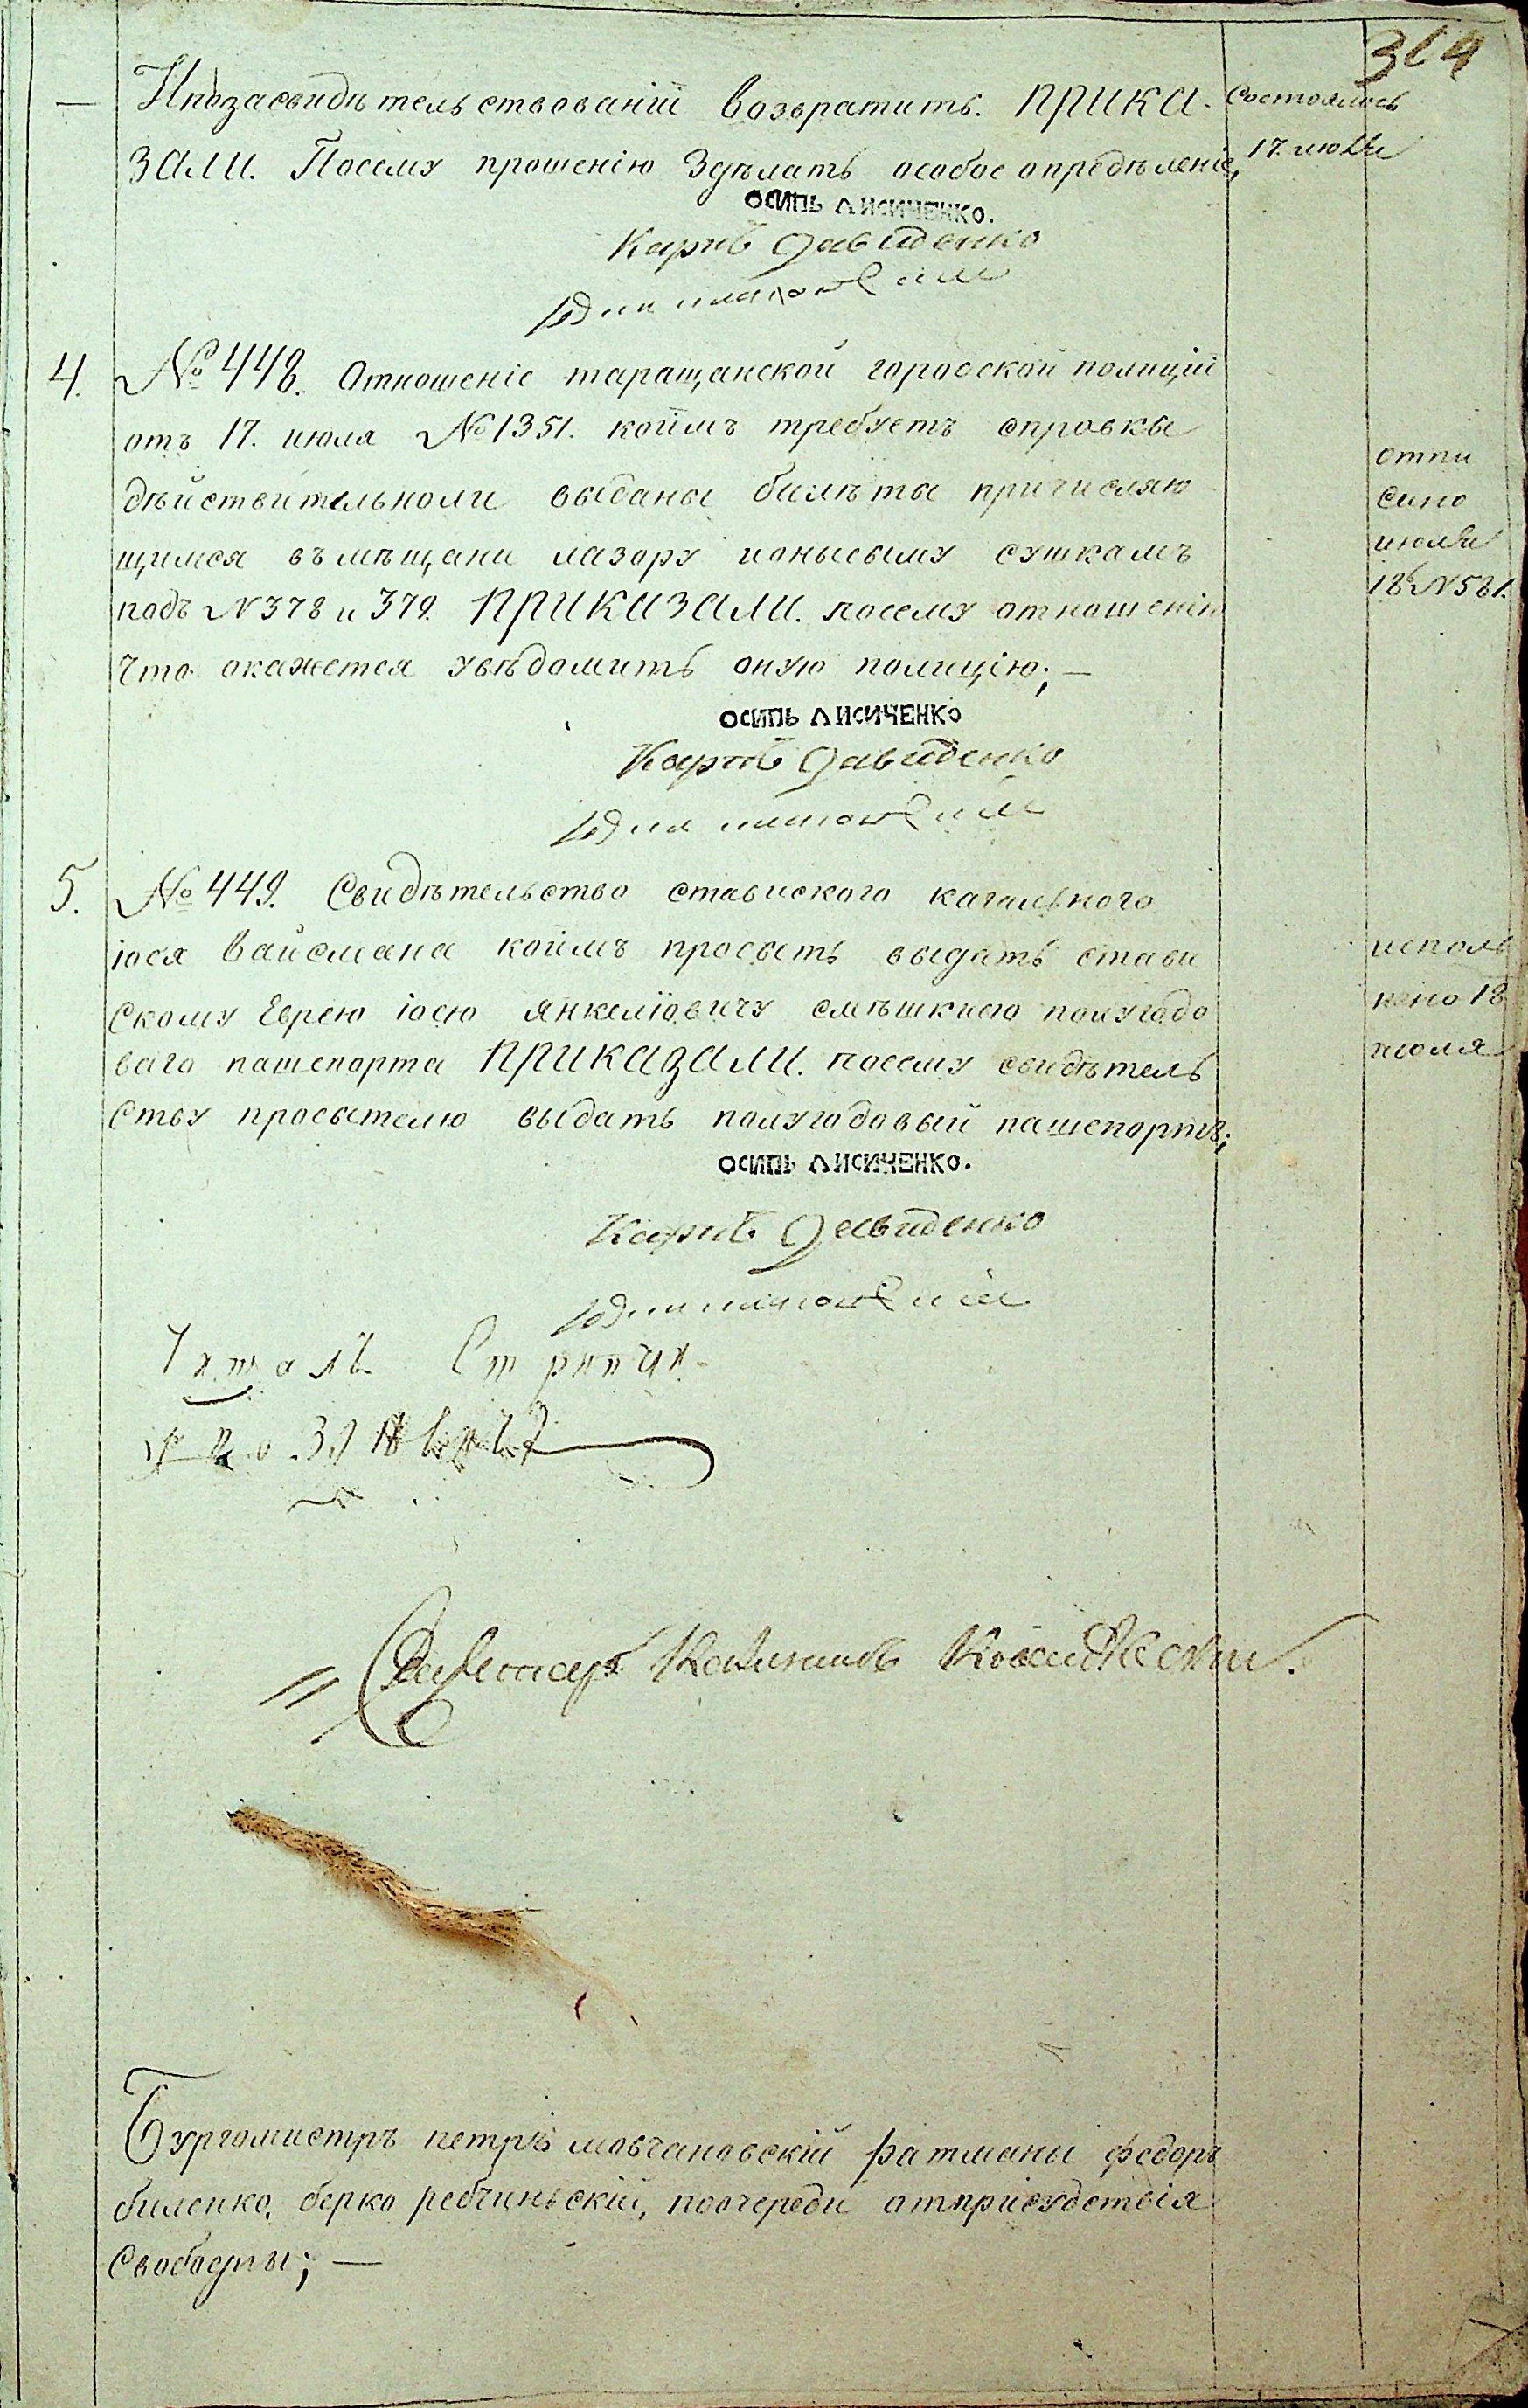 314
Ипозасвидѣтельствованіи возвратить. ПРИКА-
ЗАЛИ. Посему прошенію Здѣлать особое опредѣленіе,
Состоялось
17. июля
ОСИПЬ ЛИСИЧЕНКО.
Карпъ Давиденко
4.
№ 448. Отношеніе таращанской городской полиціи
отъ 17. июля № 1351. коимъ требуетъ справки
дѣйствительноли выданы билѣты причисляю
щимся въ мѣщани лазору ионысыму сушкамъ
подъ N 378 и 379. ПРИКАЗАЛИ. посему отношенію
что окажется увѣдомить оную полицію; —
отпи
сано
июля
18 N 581.
ОСИПЬ ЛИСИЧЕНКО
Карпъ Давиденко
5.
№ 449. Свидѣтельство ставиского кагального
іося Вайсмана коимъ просыть выдать стави
скому Еврею іосю янкеліовичу смѣшкисю полугодо
ваго пашепорта ПРИКАЗАЛИ. посему свидѣтель
ству просытелю выдать полугодовый пашепортъ;
исполь
нено 18
июля
ОСИПЬ ЛИСИЧЕНКО.
Карпъ Давиденко
Читалъ Стряпчи
Бургомистръ петръ мовчановскій ратманы федоръ
биленко, берко ребчиньскій, поочереди отприсудствія
Свободны; —